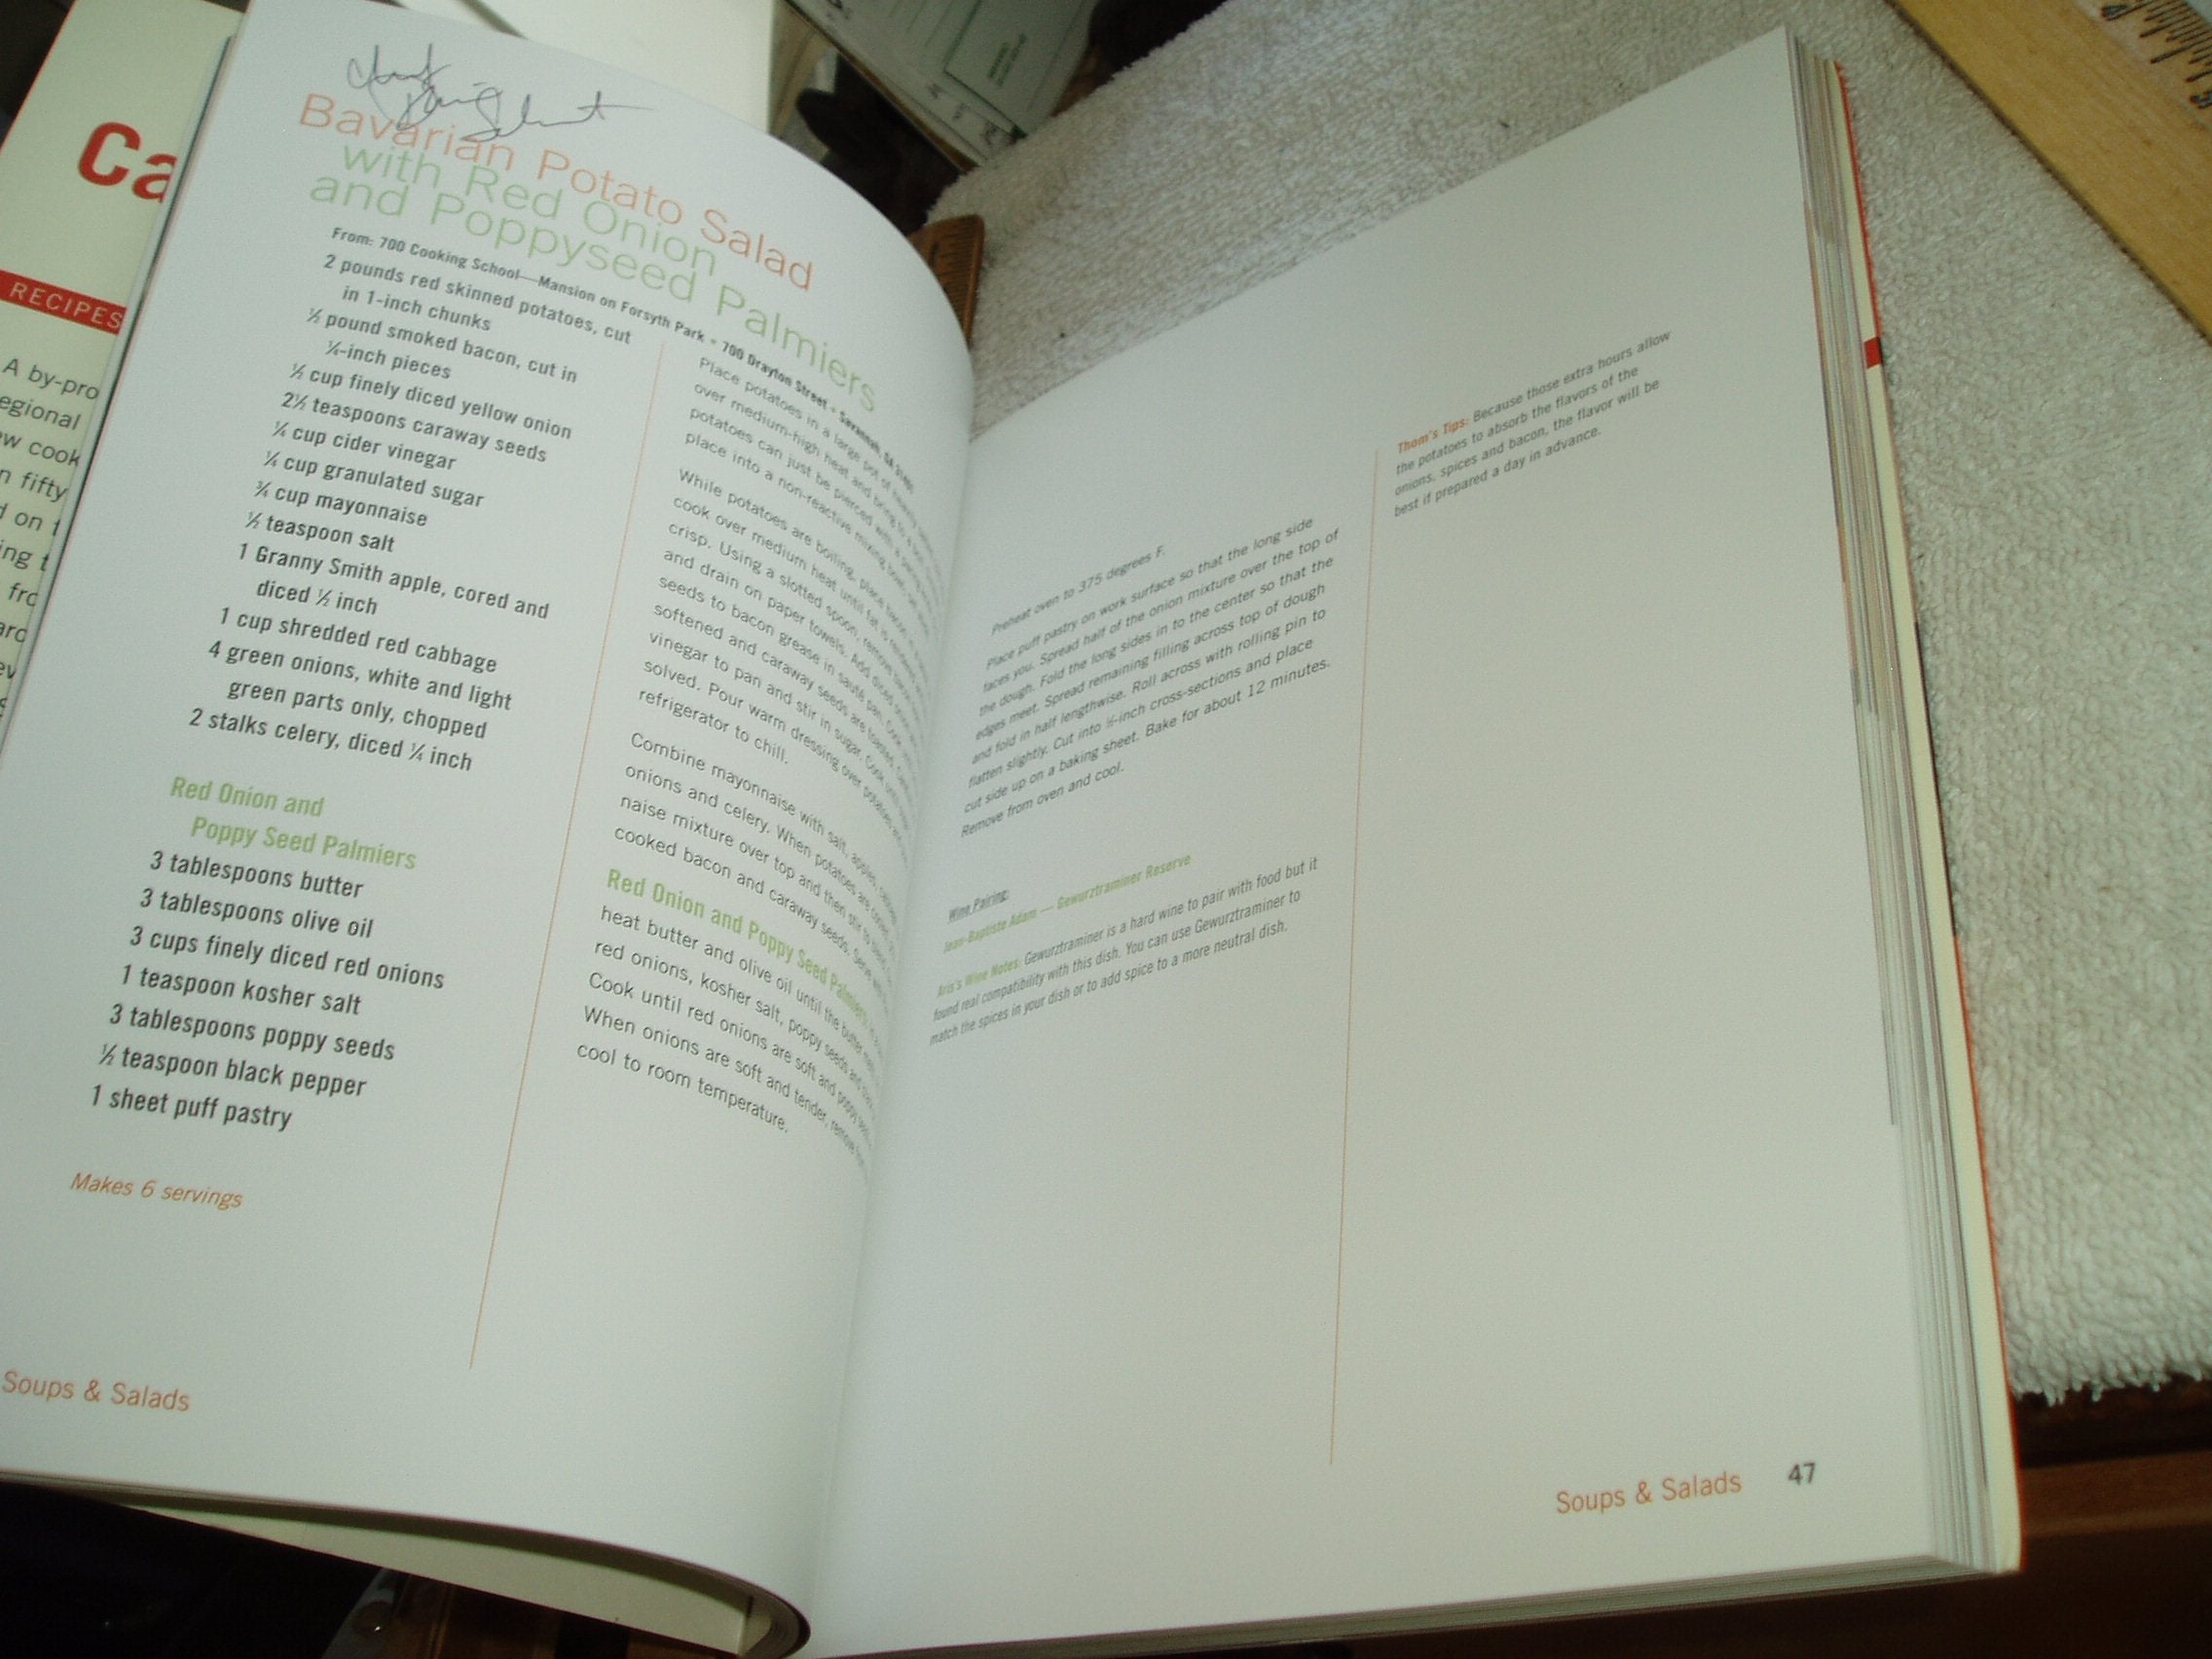 Ca
RECIPES
A by-pro
egional
w cook
n fifty
Bavarian Potato Salad
with Red Onion
and Poppyseed Palmiers
From: 700 Cooking School—Mansion on Forsyth Park • 700 Drayton Street • Savannah, GA
2 pounds red skinned potatoes, cut
in 1-inch chunks
½ pound smoked bacon, cut in
¼-inch pieces
½ cup finely diced yellow onion
2½ teaspoons caraway seeds
¼ cup cider vinegar
¼ cup granulated sugar
¾ cup mayonnaise
½ teaspoon salt
1 Granny Smith apple, cored and
diced ½ inch
1 cup shredded red cabbage
4 green onions, white and light
green parts only, chopped
2 stalks celery, diced ¼ inch
Red Onion and
Poppy Seed Palmiers
3 tablespoons butter
3 tablespoons olive oil
3 cups finely diced red onions
1 teaspoon kosher salt
3 tablespoons poppy seeds
½ teaspoon black pepper
1 sheet puff pastry
Makes 6 servings
Soups & Salads
Place potatoes in a large pot of
over medium-high heat and bring to a
potatoes can just be pierced with a
place into a non-reactive mixing bowl
While potatoes are boiling, place bacon
cook over medium heat until fat is rendered
crisp. Using a slotted spoon, remove bacon
and drain on paper towels. Add diced
seeds to bacon grease in sauté pan. Cook
softened and caraway seeds are toasted.
vinegar to pan and stir in sugar. Cook until
solved. Pour warm dressing over potatoes
refrigerator to chill.
Combine mayonnaise with salt, apples,
onions and celery. When potatoes are
naise mixture over top and then stir to
cooked bacon and caraway seeds. Serve
Red Onion and Poppy Seed Palmiers:
heat butter and olive oil until the butter
red onions, kosher salt, poppy seeds and
Cook until red onions are soft and poppy
When onions are soft and tender, remove
cool to room temperature.
Preheat oven to 375 degrees F.
Place puff pastry on work surface so that the long side
faces you. Spread half of the onion mixture over the top of
the dough. Fold the long sides in to the center so that the
edges meet. Spread remaining filling across top of dough
and fold in half lengthwise. Roll across with rolling pin to
flatten slightly. Cut into ½-inch cross-sections and place
cut side up on a baking sheet. Bake for about 12 minutes.
Remove from oven and cool.
Wine Pairing:
Jean-Baptiste Adam — Gewurztraminer Reserve
Aris's Wine Notes: Gewurztraminer is a hard wine to pair with food but it
found real compatibility with this dish. You can use Gewurztraminer to
match the spices in your dish or to add spice to a more neutral dish.
Thom's Tips: Because those extra hours allow
the potatoes to absorb the flavors of the
onions, spices and bacon, the flavor will be
best if prepared a day in advance.
Soups & Salads 47